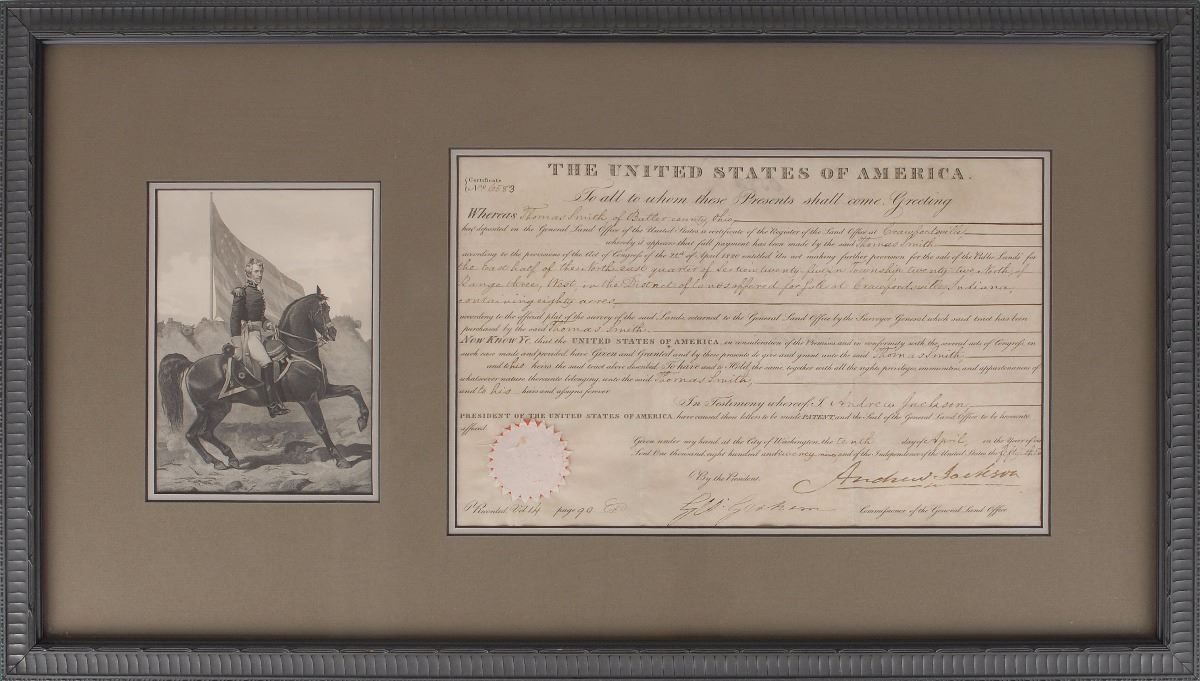 THE UNITED STATES OF AMERICA.
Certificate
No. 6583
To all to whom these Presents shall come, Greeting
Whereas Thomas Smith, of Butler county, Ohio
has deposited in the General Land Office of the United States a certificate of the Register of the Land Office at Crawfordsville
whereby it appears that full payment has been made by the said Thomas Smith
according to the provisions of the Act of Congress of the 24th of April 1820 entitled An act making further provision for the sale of the Public Lands for
the East half of the North east quarter of Section twenty five, in Township twenty two, North, of
Range three, West, in the District of lands offered for sale at Crawfordsville, Indiana,
containing eighty acres
according to the official plat of the survey of the said Lands, returned to the General Land Office by the Surveyor General which said tract has been
purchased by the said Thomas Smith
Now Know Ye that the UNITED STATES OF AMERICA, in consideration of the Premises and in conformity with the several acts of Congress, in
such case made and provided have Given and Granted and by these presents do give and grant unto the said Thomas Smith
and to his heirs the said tract above described To have and to Hold the same together with all the rights, privileges, immunities, and appurtenances of
whatsoever nature thereunto belonging, unto the said Thomas Smith,
and to his heirs and assigns forever
In Testimony whereof I Andrew Jackson
PRESIDENT OF THE UNITED STATES OF AMERICA, have caused these letters to be made PATENT, and the Seal of the General Land Office to be hereunto
affixed
Given under my hand, at the City of Washington, the tenth day of April, in the Year of our
Lord One thousand, eight hundred and and of the Independence of the United States the
By the President.
Andrew Jackson
Recorded Vol 14 page 90
Graham Commissioner of the General Land Office